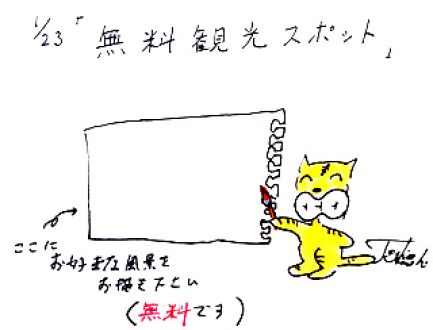 1/23「無料観光スポット」
ここに
お好きな風景を
お描き下さい
(無料です)